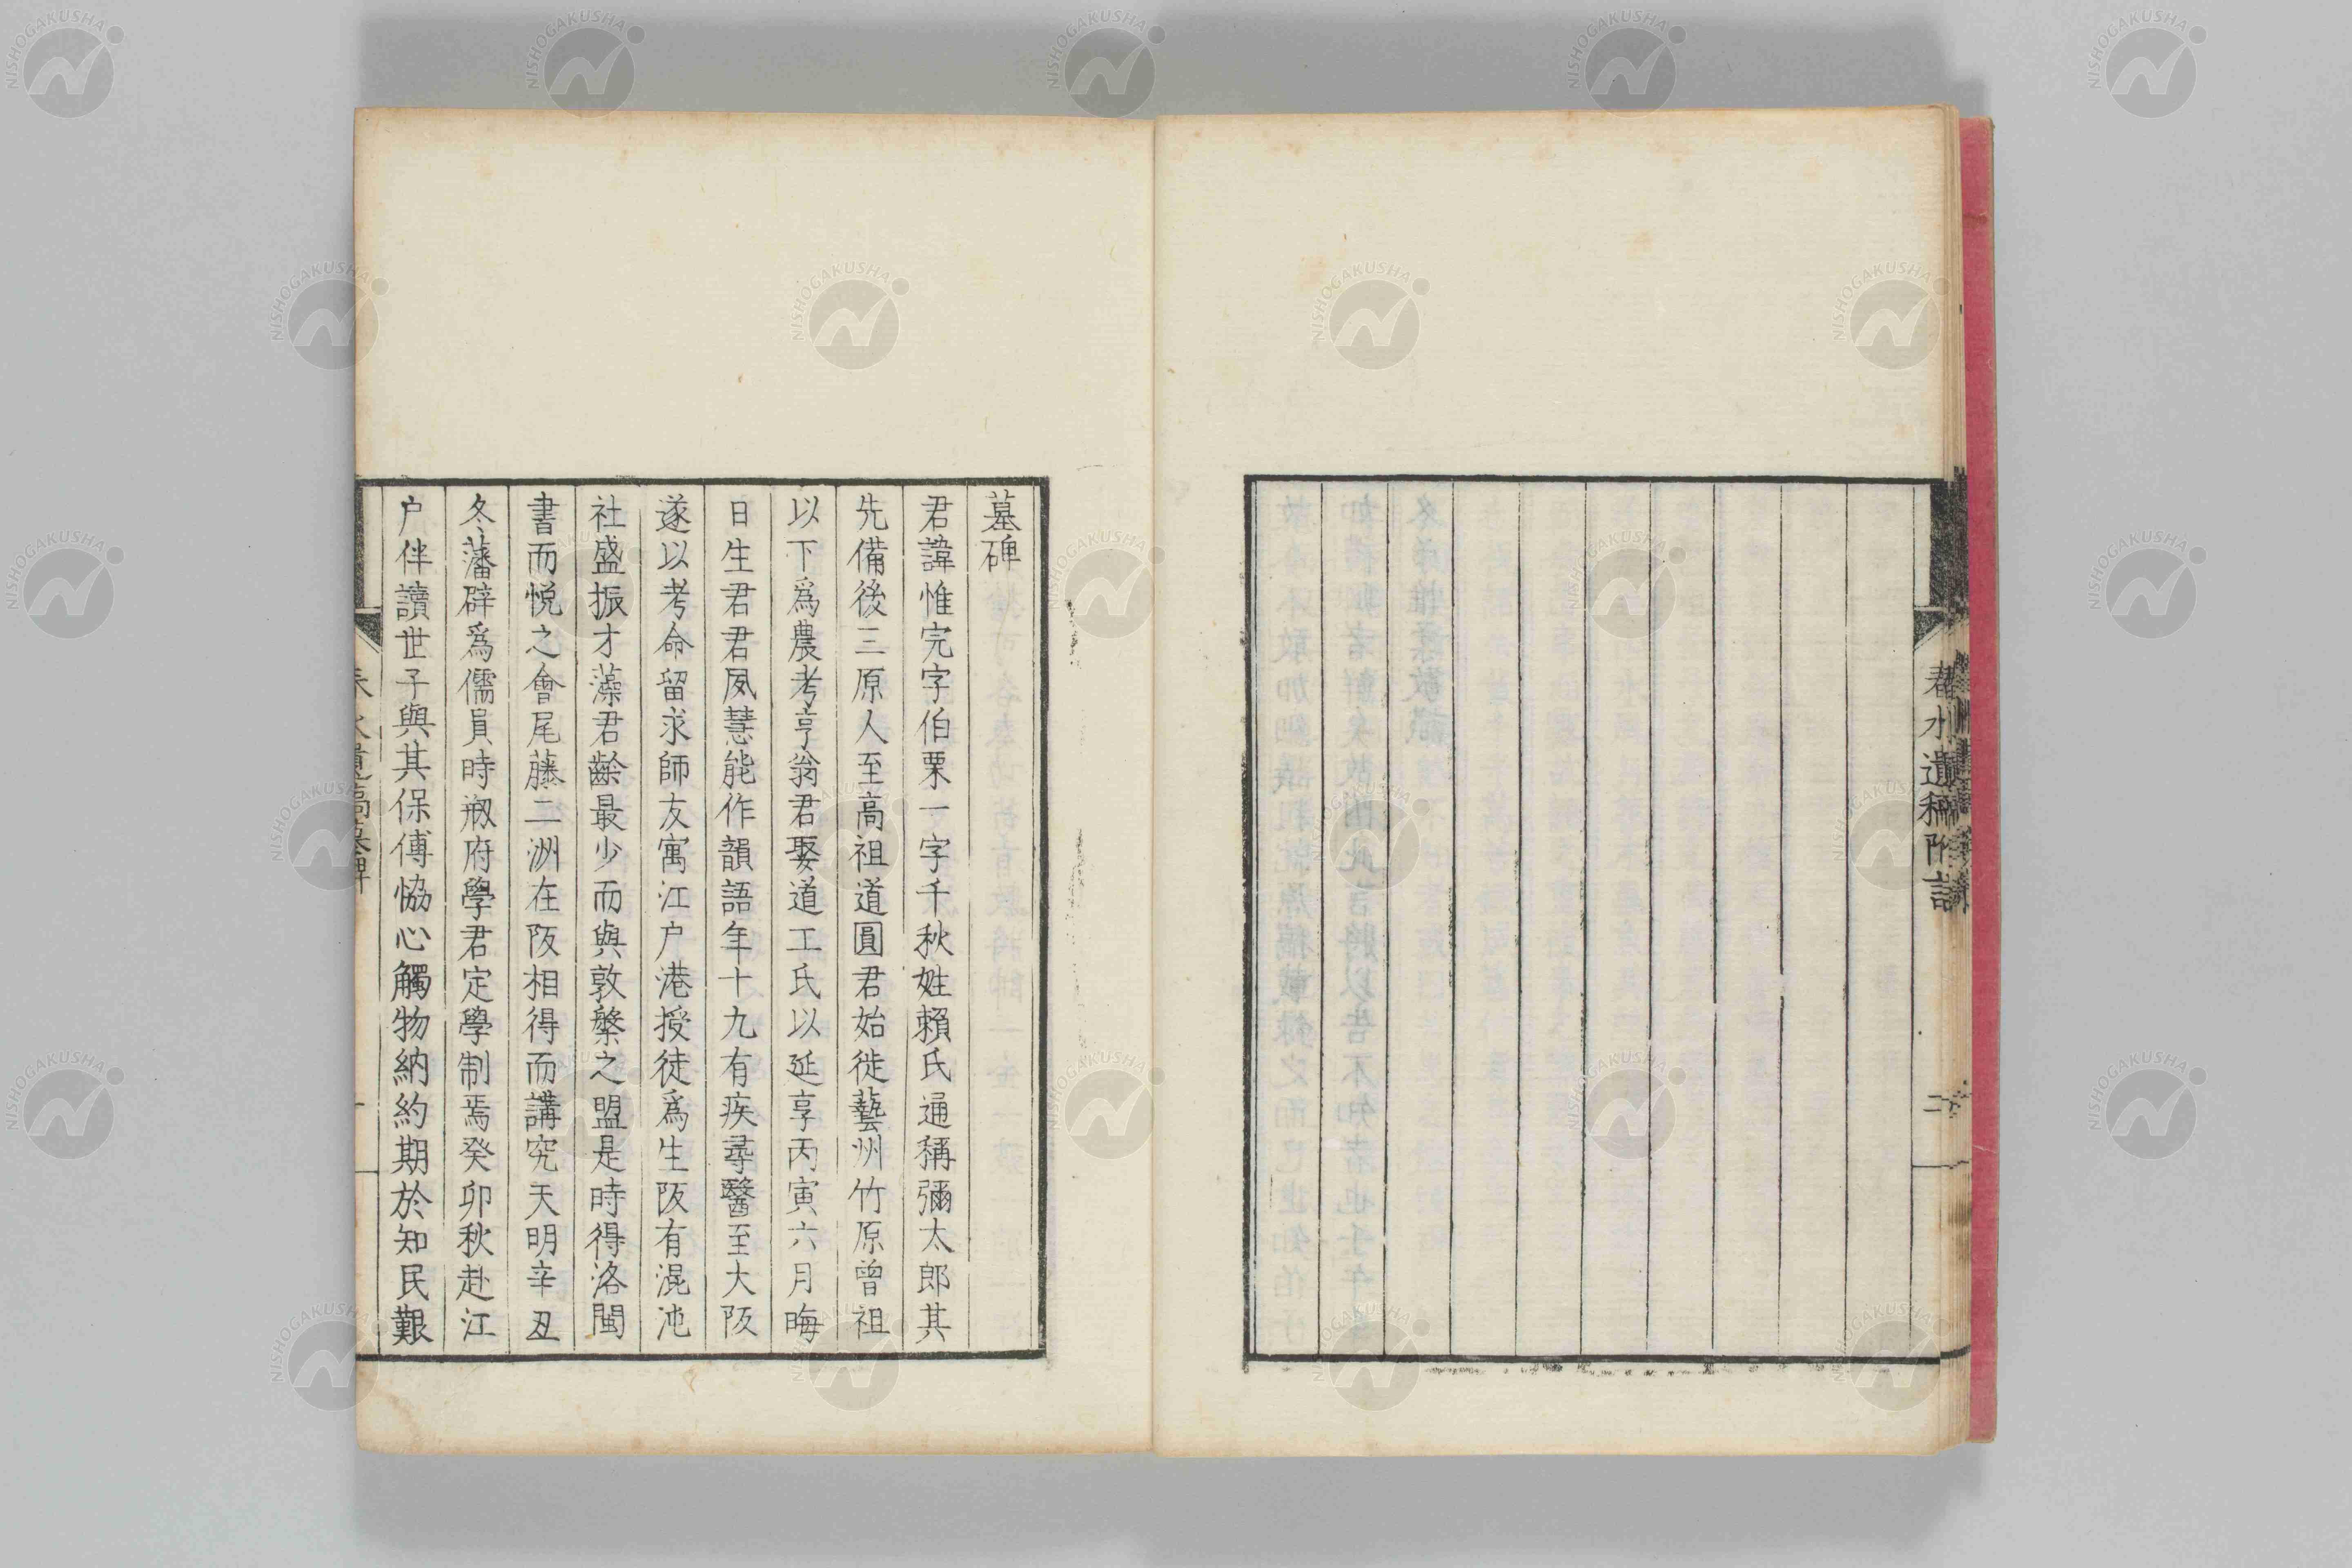 春水遺稿附
二
墓碑
君諱惟完字伯栗一字千秋姓賴氏通稱彌太郎其
先備後三原人至高祖道圓君始徙藝州竹原曾祖
以下爲農考亨翁君娶道工氏以延享丙寅六月晦
日生君君夙慧能作韻語年十九有疾尋醫至大阪
遂以考命留求師友寓江户港授徒爲生阪有混沌
社盛振才藻君齡最少而與敦槃之盟是時得洛閩
書而悦之會尾藤二洲在阪相得而講究天明辛丑
冬藩辟爲儒員時剏府學君定學制焉癸卯秋赴江
户伴讀世子與其保傅恊心觸物納約期於知民艱
NISHOGAKUSHA